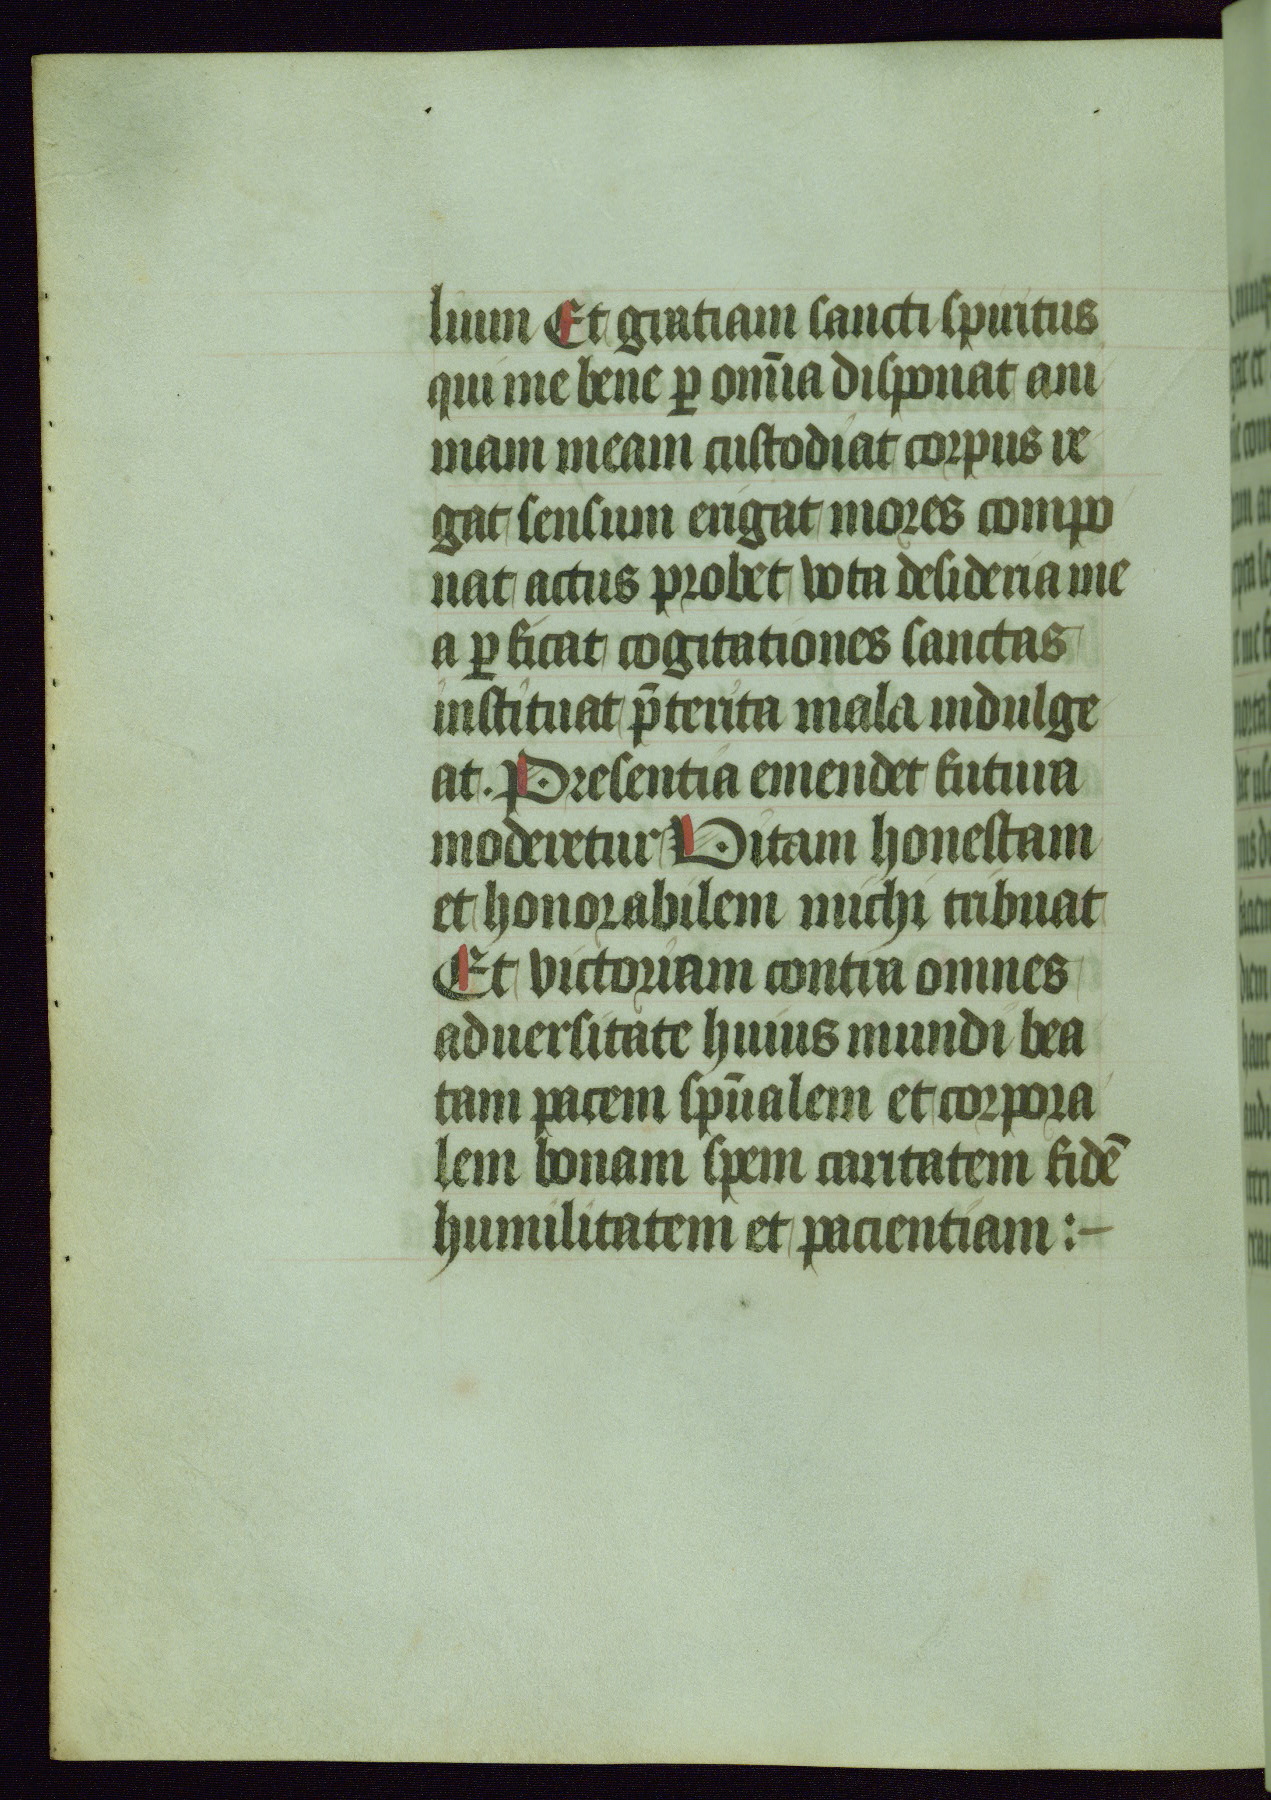 lium Et gratiam sancti spiritus
qui me bene ꝑ om̄ia disponat ani
mam meam custodiat corpus re
gat sensum erigat mores compo
nat actus probet vota desideria me
a ꝑficat cogitationes sanctas
instituat p̄terita mala indulge
at. Presentia emendet futura
moderetur Vitam honestam
et honorabilem michi tribuat
Et victoriam contra omnes
aduersitate huius mundi bea
tam pacem sp̄ualem et corpora
lem bonam spem caritatem fidē
humilitatem et pacientiam :-